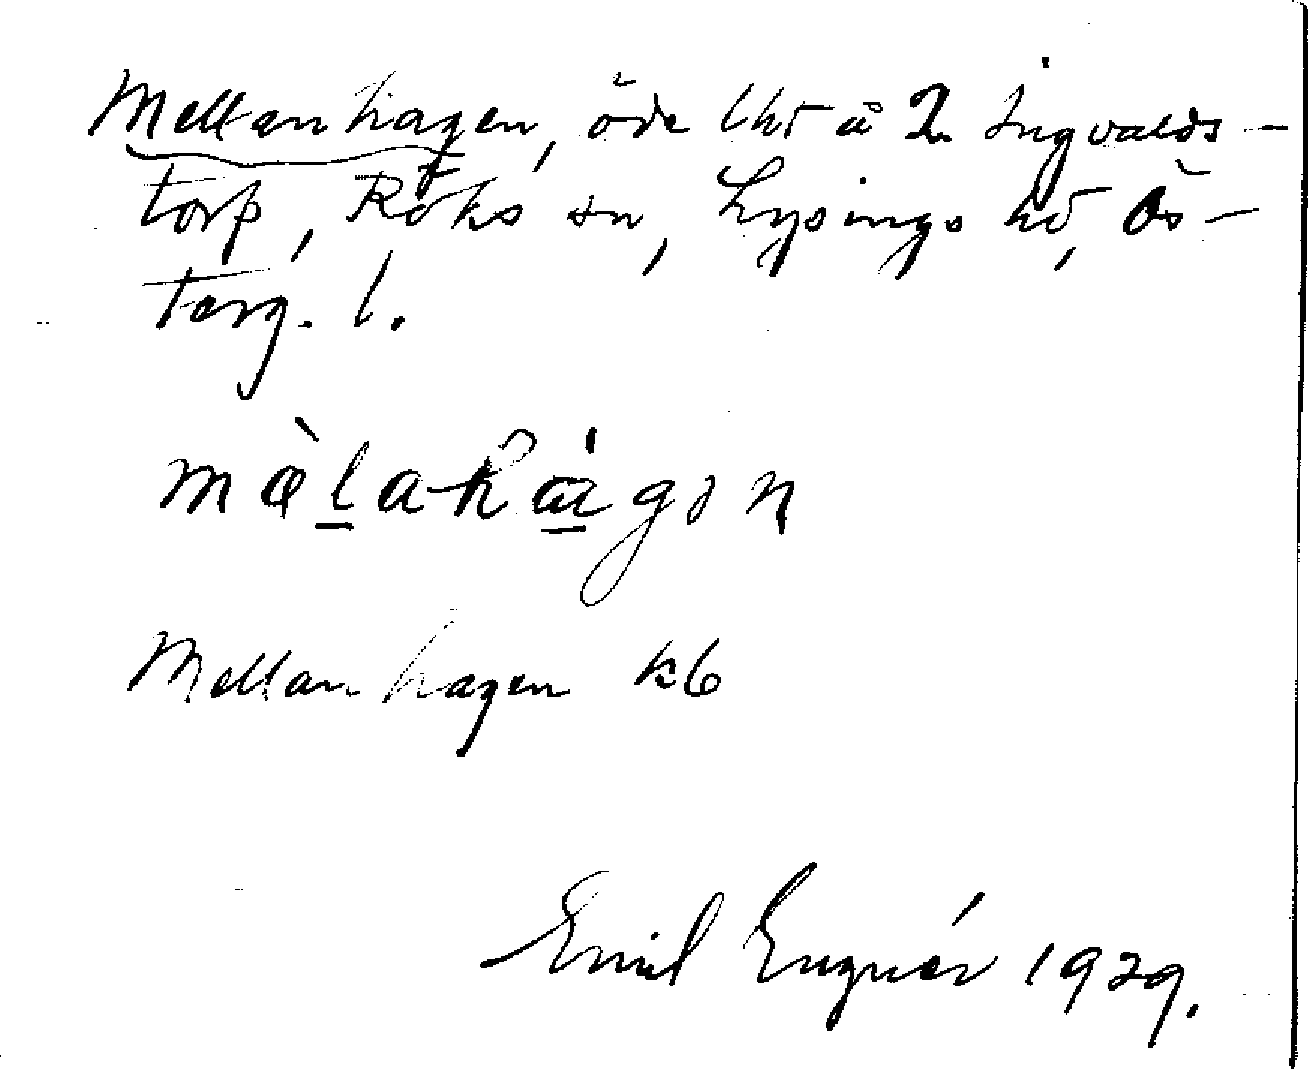 Mellanhagen, öde lht å 2 Ingvalds-
torp, Röks sn, Lysings hd, Ös-
terg. l.
mæ̀lahàgən
Mellanhagen kb
Emil Engnér 1929.